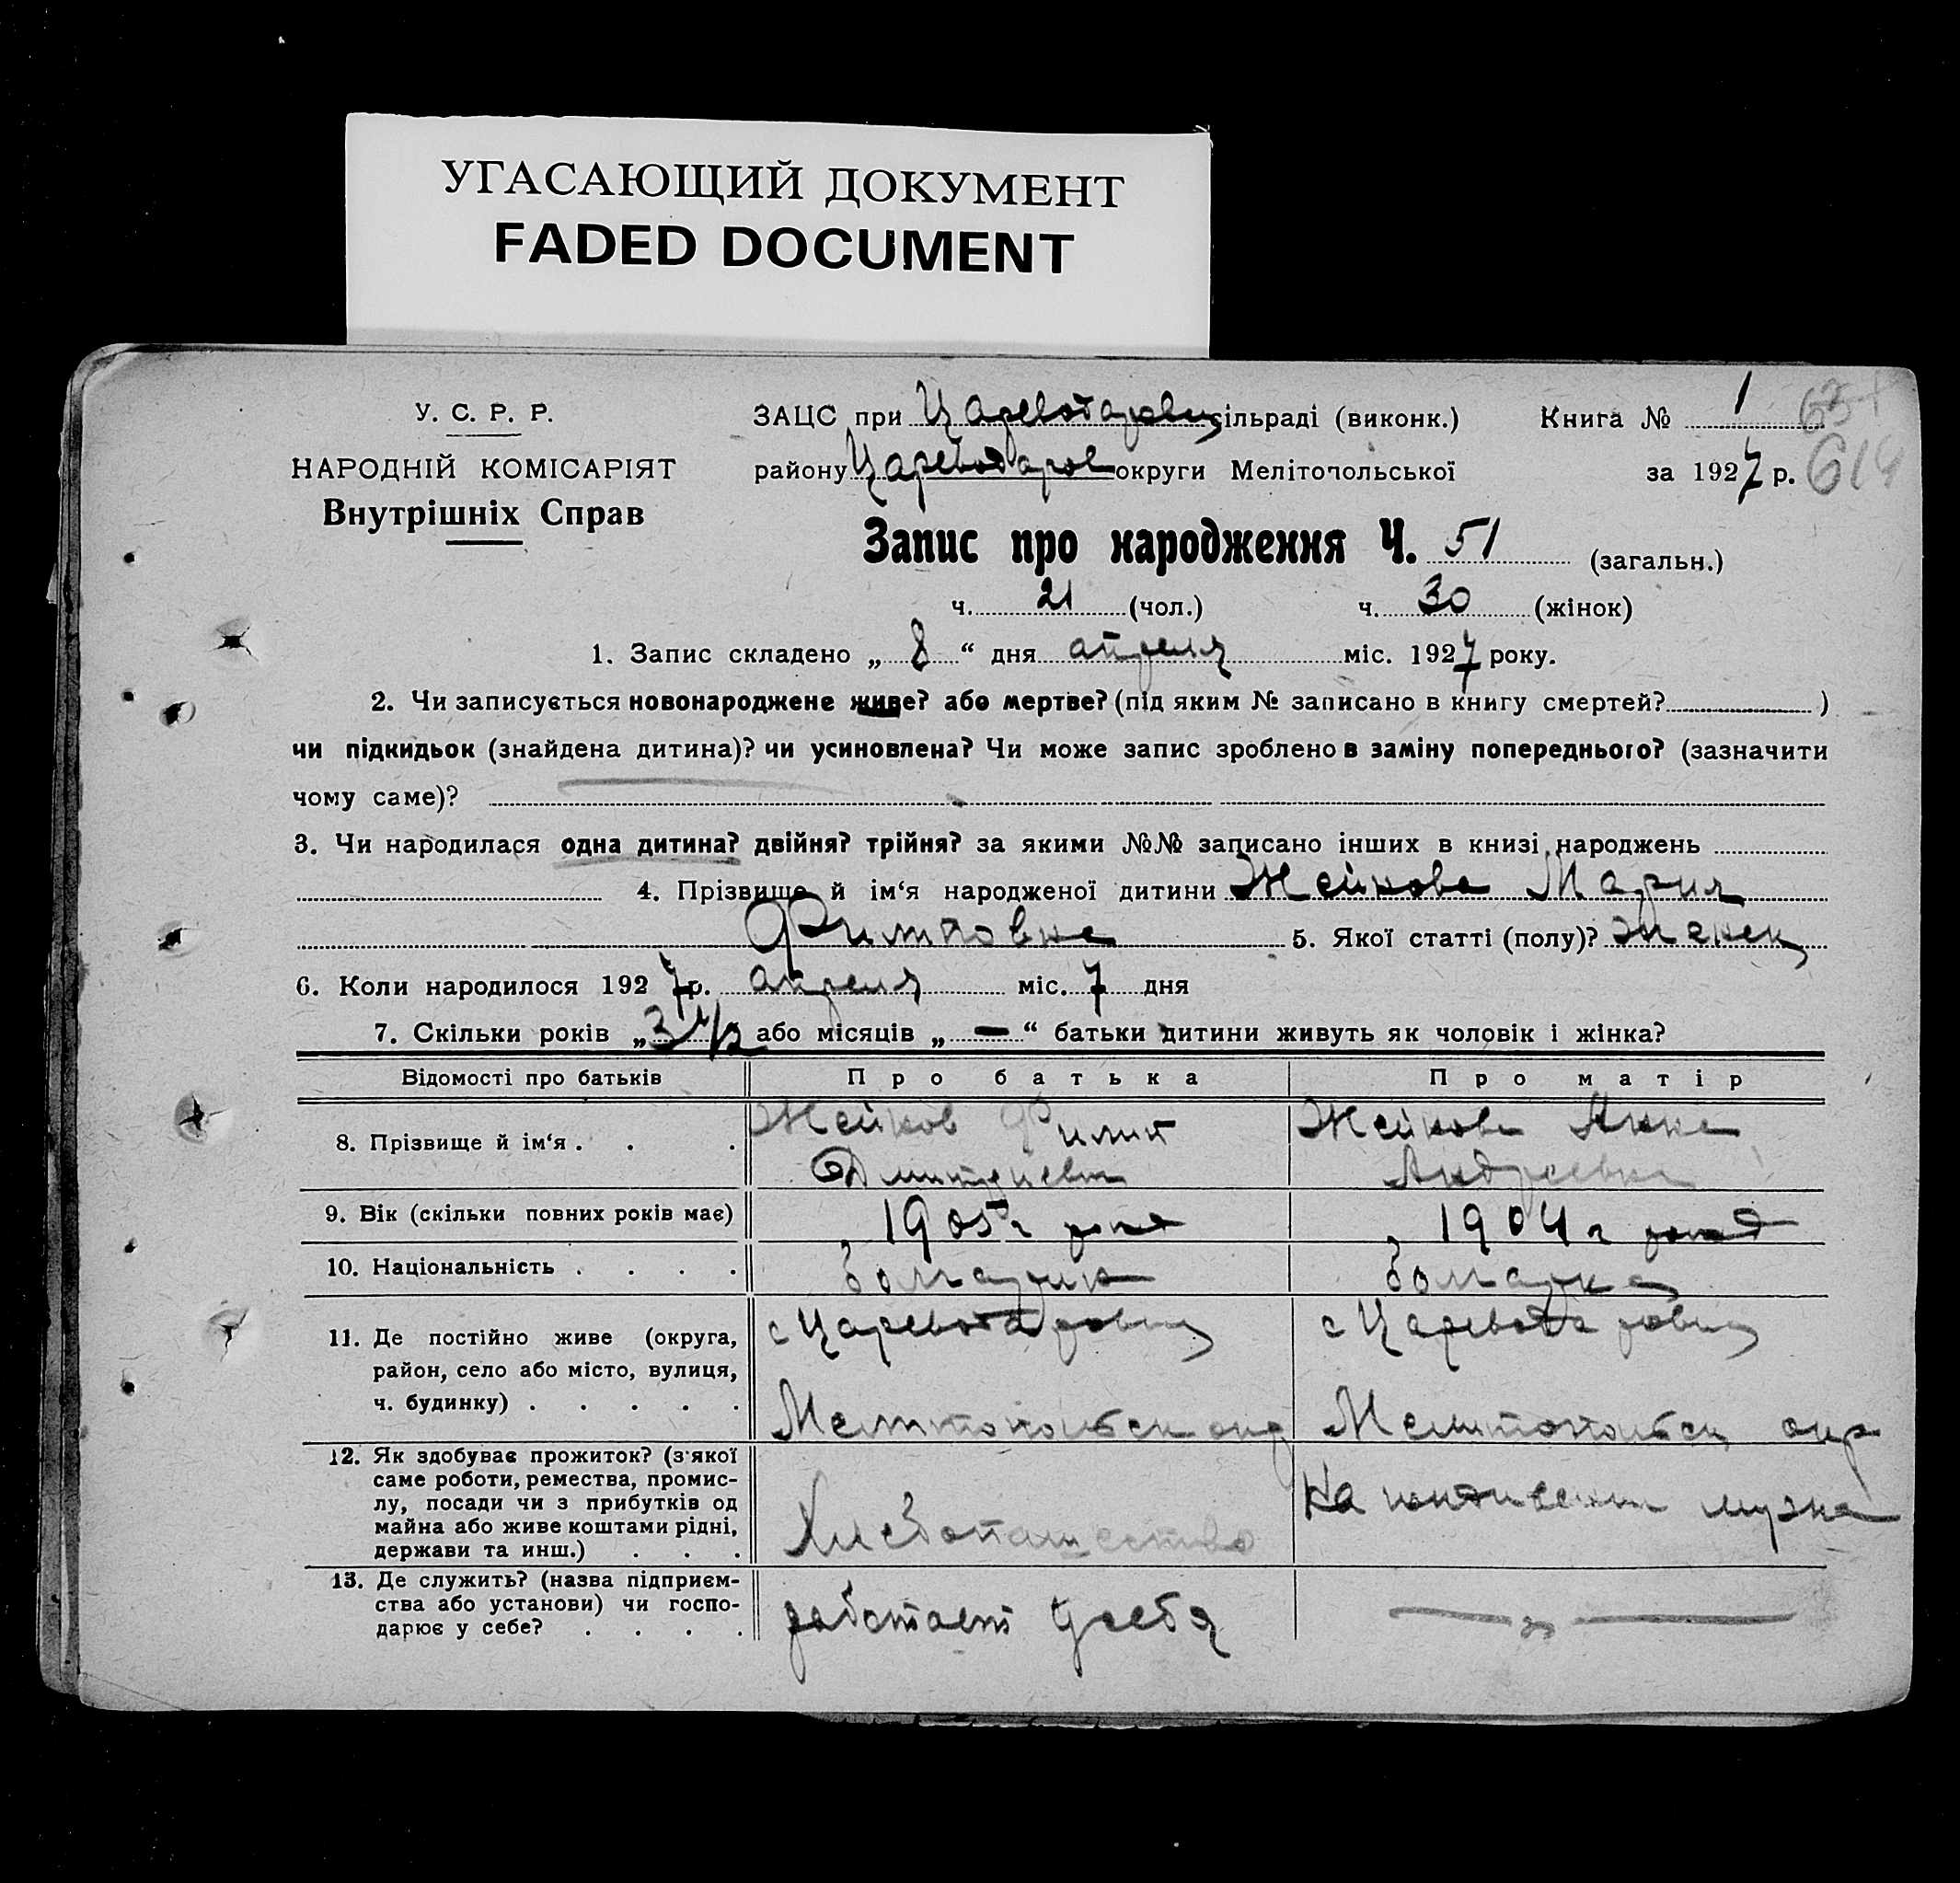 УГАСАЮЩИЙ ДОКУМЕНТ
FADED DOCUMENT
У. С. Р. Р.
НАРОДНІЙ КОМІСАРІЯТ
Внутрішніх Справ
ЗАЦС при Цареводаровц сільраді (виконк.) Книга № 1
району Цареводаров округи Мелітопольської за 1927 р. 614
Запис про народження Ч. 51 (загальн.)
ч. 21 (чол.) ч. 30 (жінок)
1. Запис складено „ 8 “ дня апреля міс. 1927 року.
2. Чи записується новонароджене живе? або мертве? (під яким № записано в книгу смертей? )
чи підкидьок (знайдена дитина)? чи усиновлена? Чи може запис зроблено в заміну попереднього? (зазначити
чому саме)?
3. Чи народилася одна дитина? двійня? трійня? за якими №№ записано інших в книзі народжень
4. Прізвище й ім‘я народженої дитини Жейнова Мария
Филиповна 5. Якої статті (полу)? женск
6. Коли народилося 1927 р. апреля міс. 7 дня
7. Скільки років „ 3 1/2 або місяців „ — “ батьки дитини живуть як чоловік і жінка?
Відомості про батьків Про батька Про матір
8. Прізвище й ім‘я . . . Жейнов Филип Жейнова Анна
Дмитриевич Андреевна
9. Вік (скільки повних років має) 1905 г рожд 1904 г рожд
10. Національність . . . . болгарин болгарка
11. Де постійно живе (округа, с Цареводаровц с Цареводаровц
район, село або місто, вулиця,
ч. будинку) . . . . . Мелитопольск окр Мелитопольск окр
12. Як здобуває прожиток? (з'якої
саме роботи, ремества, промис- на иждивении мужа
лу, посади чи з прибутків од
майна або живе коштами рідні, Хлебопашество
держави та инш.) . . .
13. Де служить? (назва підприєм-
ства або установи) чи госпо- работает у себя
дарює у себе? . . . .